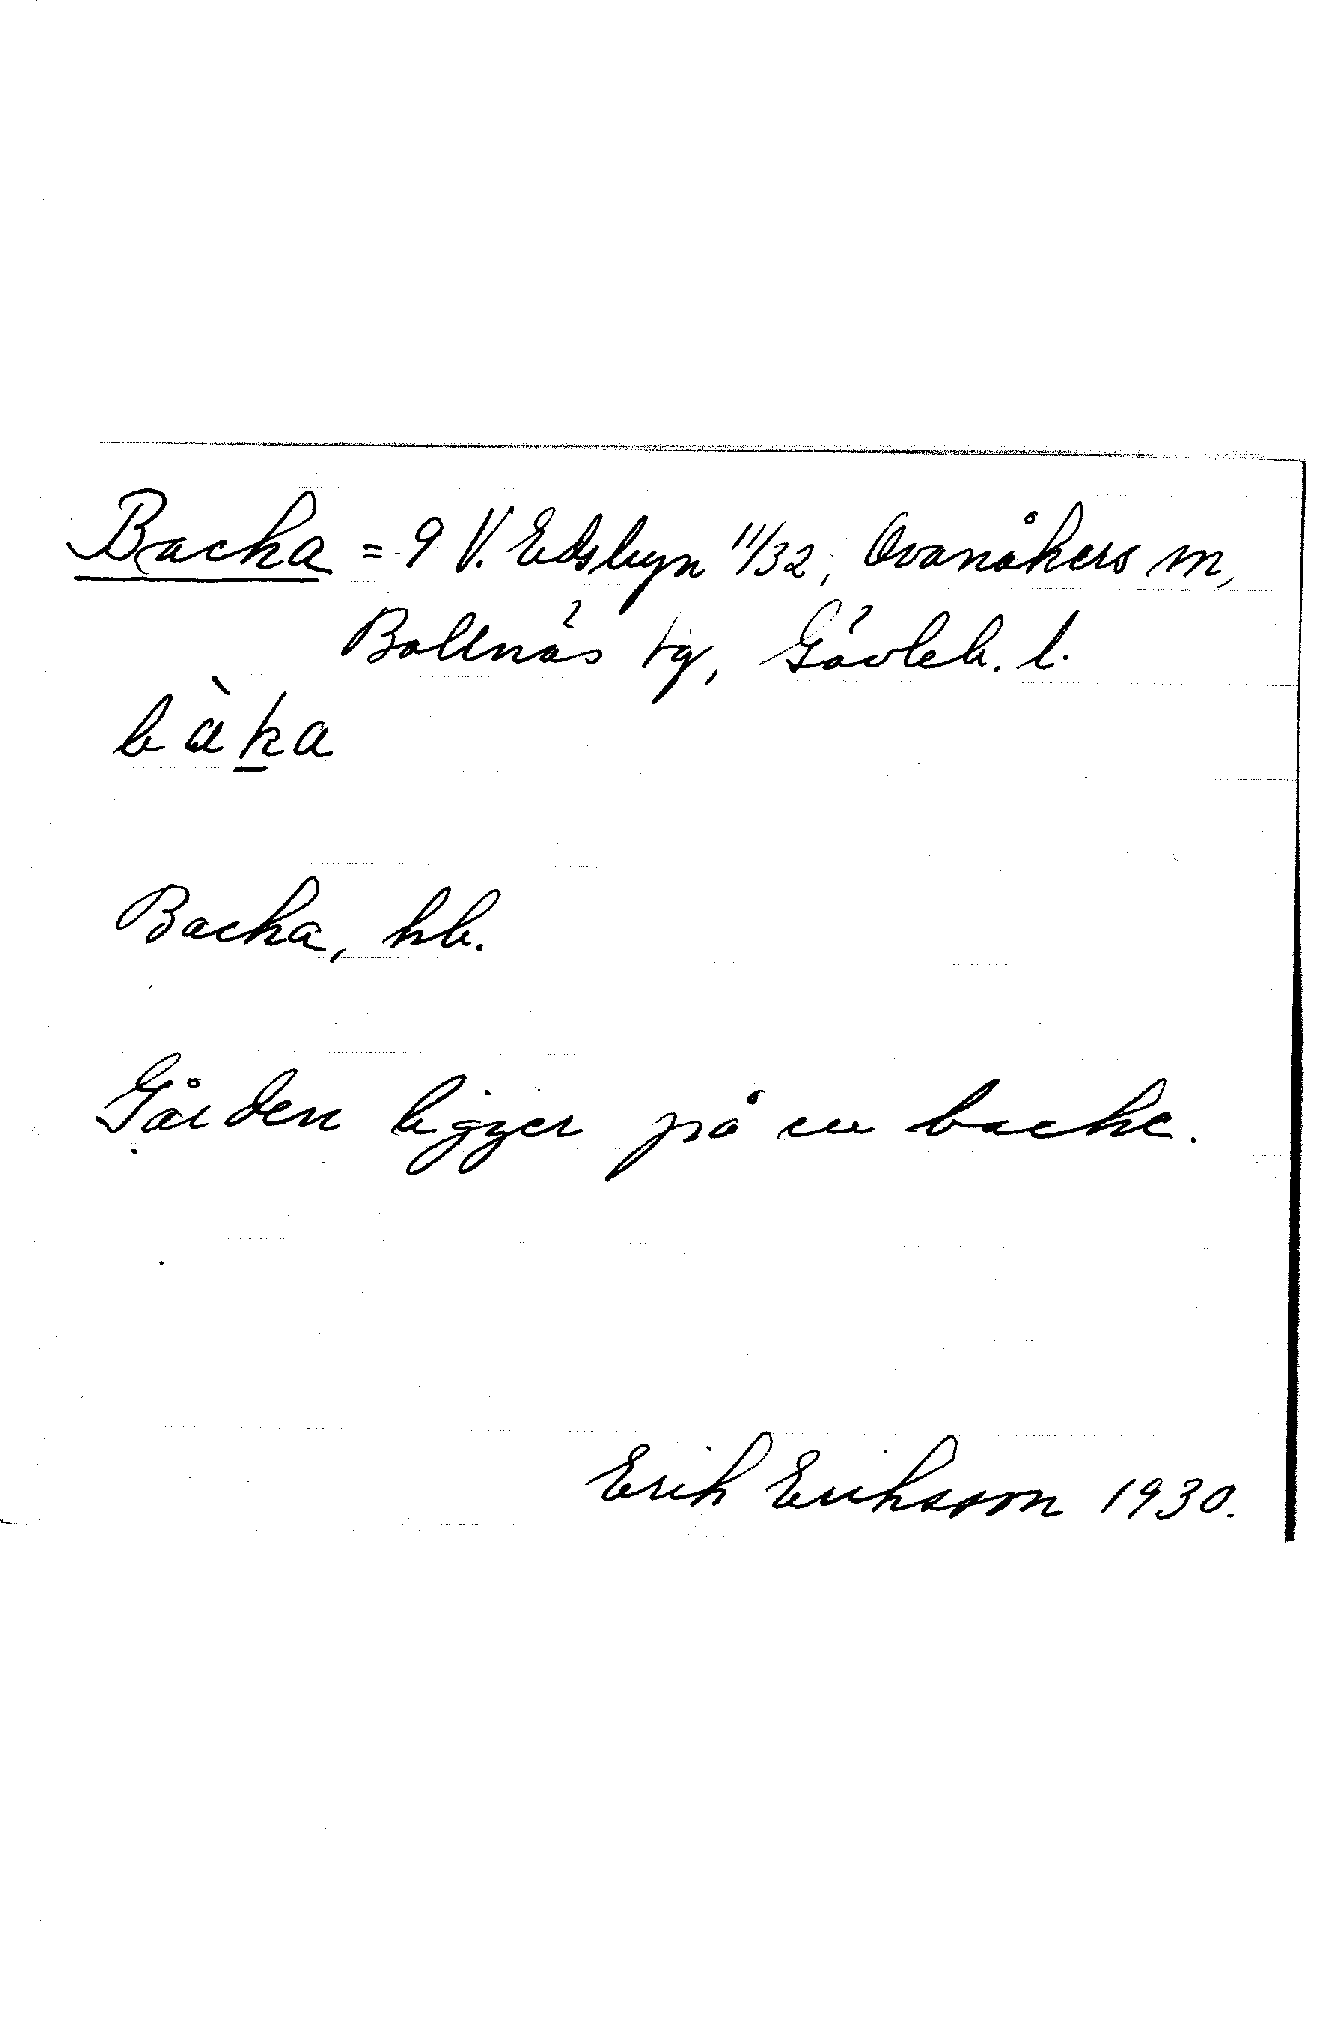 Backa = 9 V. Edsbyn 11/32, Ovanåkers sn,
Bollnäs tg, Gävleb. l.
bàka
Backa, hb.
Gården ligger på en backe.
Erik Eriksson 1930.